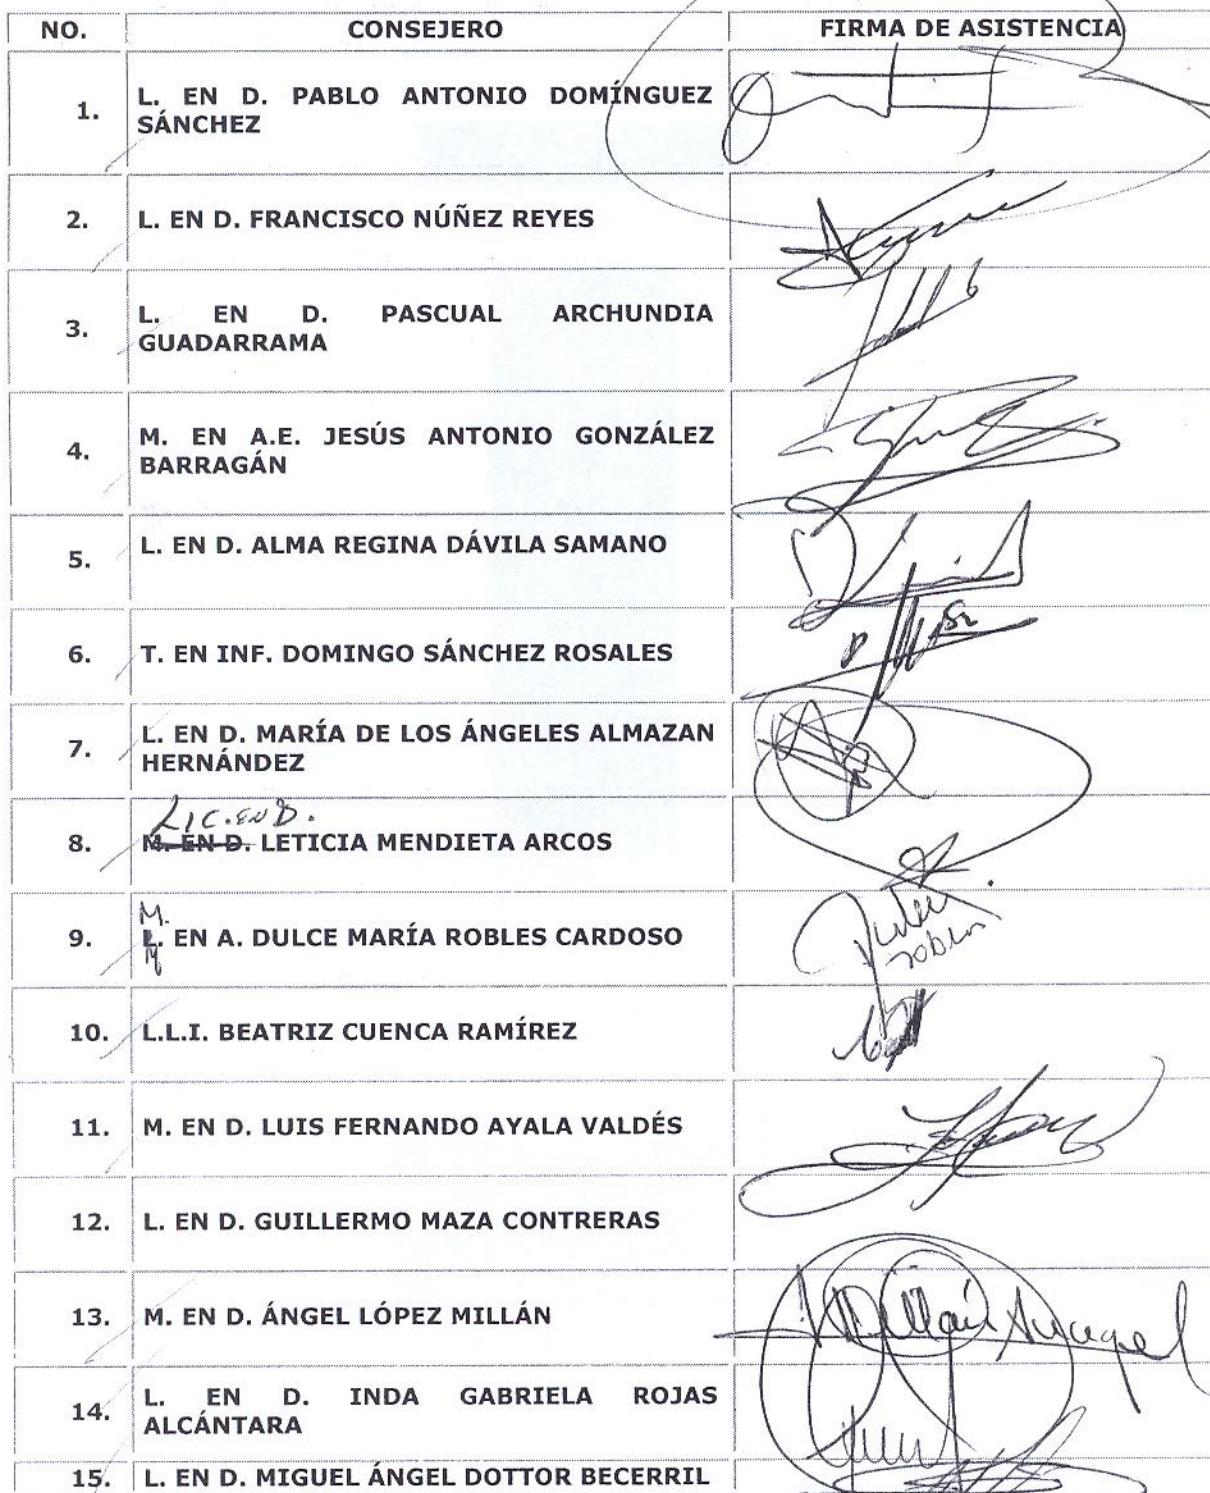 NO. CONSEJERO FIRMA DE ASISTENCIA
1. L. EN D. PABLO ANTONIO DOMÍNGUEZ
SÁNCHEZ
2. L. EN D. FRANCISCO NÚÑEZ REYES
3. L. EN D. PASCUAL ARCHUNDIA
GUADARRAMA
4. M. EN A.E. JESÚS ANTONIO GONZÁLEZ
BARRAGÁN
5. L. EN D. ALMA REGINA DÁVILA SAMANO
6. T. EN INF. DOMINGO SÁNCHEZ ROSALES
7. L. EN D. MARÍA DE LOS ÁNGELES ALMAZAN
HERNÁNDEZ
LIC. EN D.
8. M. EN D. LETICIA MENDIETA ARCOS
M.
9. L. EN A. DULCE MARÍA ROBLES CARDOSO
10. L.L.I. BEATRIZ CUENCA RAMÍREZ
11. M. EN D. LUIS FERNANDO AYALA VALDÉS
12. L. EN D. GUILLERMO MAZA CONTRERAS
13. M. EN D. ÁNGEL LÓPEZ MILLÁN
14. L. EN D. INDA GABRIELA ROJAS
ALCÁNTARA
15. L. EN D. MIGUEL ÁNGEL DOTTOR BECERRIL